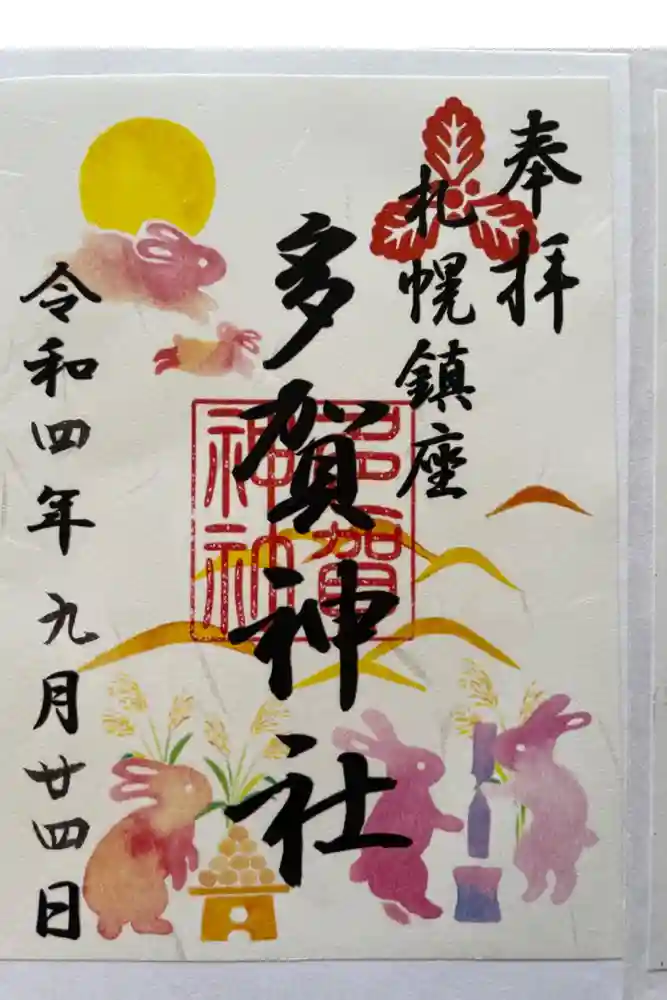 奉拝
札幌鎮座
多賀神社
令和四年九月廿四日